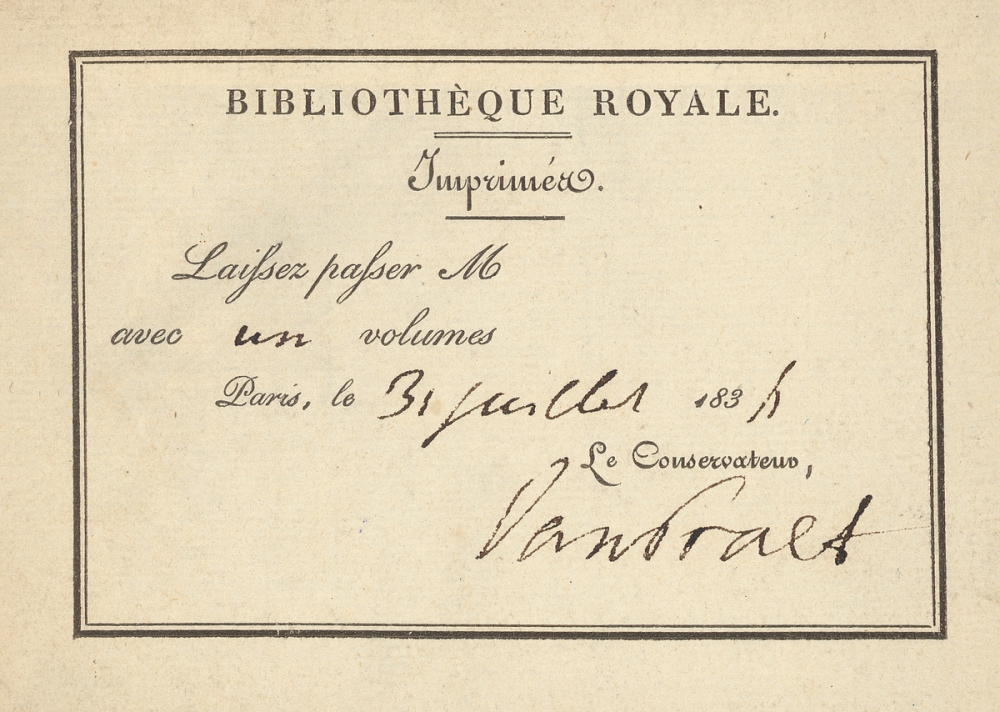 BIBLIOTHÈQUE ROYALE.
Imprimés.
Laiſsez paſser M
avec un volumes
Paris, le 31 juillet 1834
Le Conservateur,
VanPraet